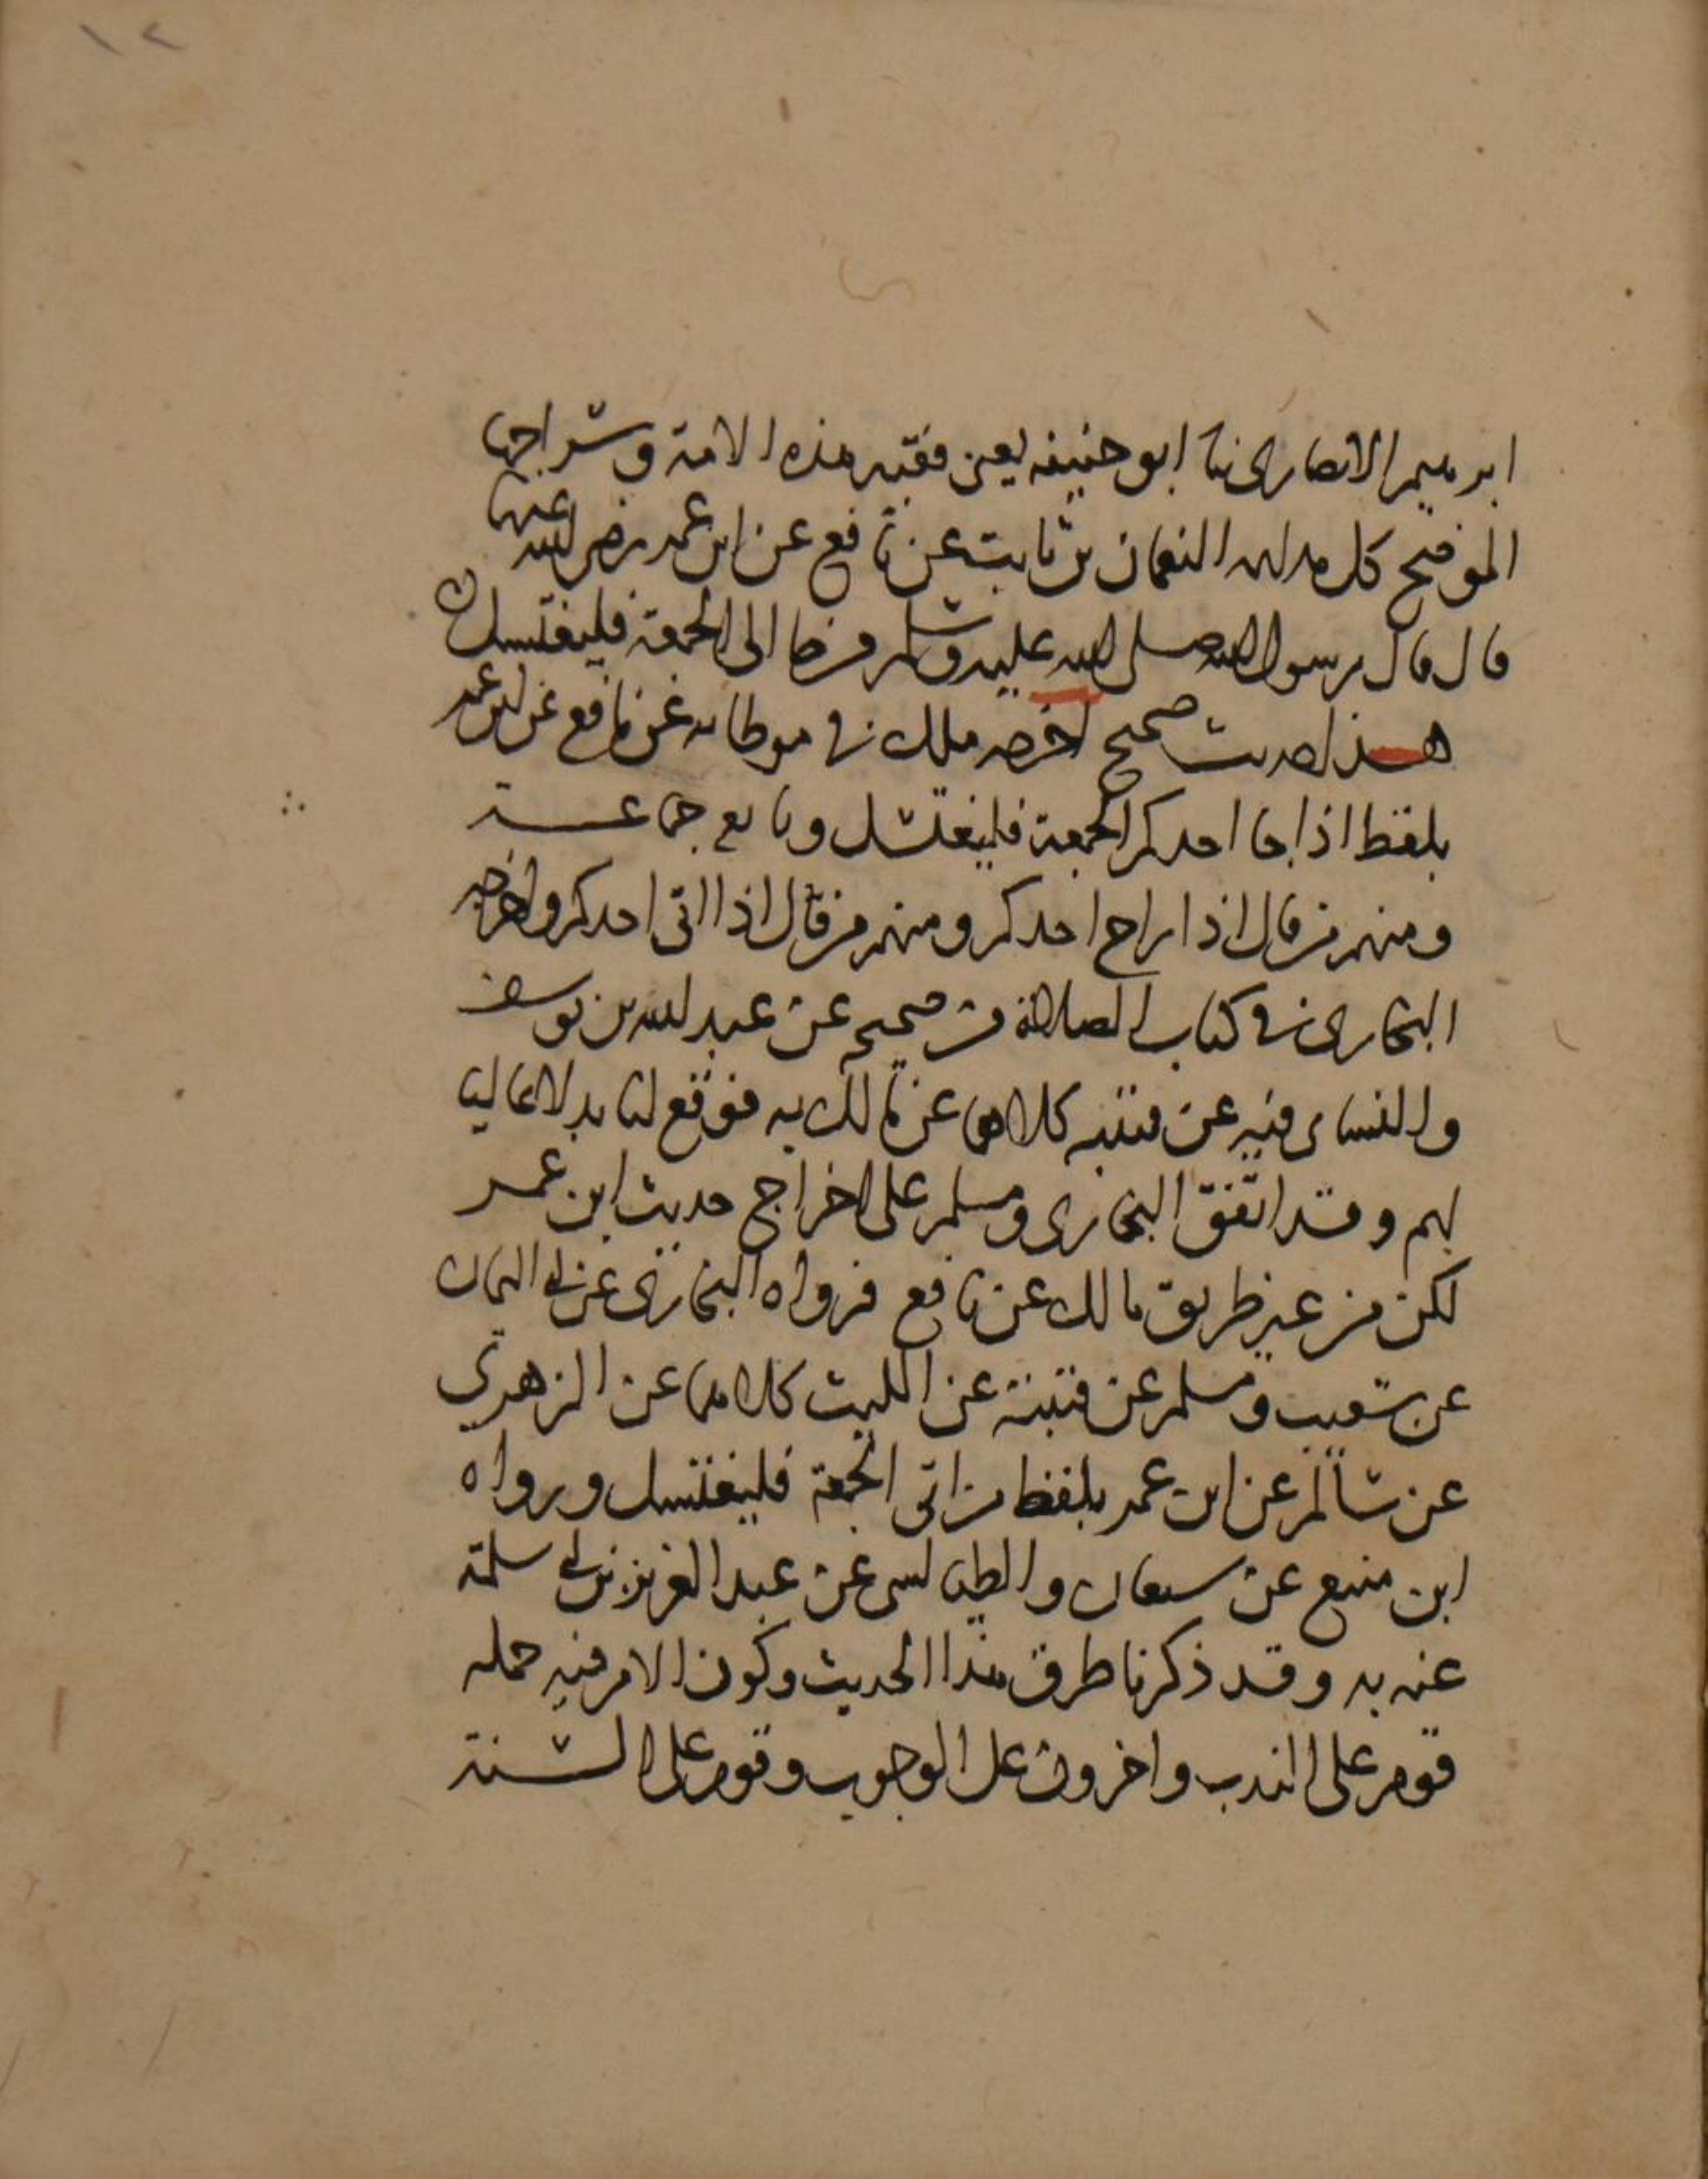 ١٢
ابرهيم الانصارى نا ابو حنيفه يعنى فقيه هذه الامة وسراجها
الموضح كل النعمان بن ثابت عن نافع عن ابن عمر رضى الله عنهما
قال قال رسول الله صلى الله عليه وسلم من جا الى الجمعة فليغتسل
هذا حديث صحيح اخرجه ملك فى موطاىه عن نافع عن ابن عمر
بلفظ اذا جا احدكم الجمعة فليغتسل وتابعه جماعة
ومنهم من قال اذا راح احدكم ومنهم من قال اذا اتى احدكم واخرجه
البخارى فى كتاب الصلاة من صحيحه عن عبد الله بن يوسف
والنساى فيه عن قتيبه كلاهما عن مالك به فوقع لنا بدلا عاليا
لهم وقد اتفق البخارى ومسلم على اخراج حديث ابن عمر
لكن من غير طريق مالك عن نافع فرواه البخارى عن ابى اليمان
عن شعيب ومسلم عن قتيبة عن الليث كلاهما عن الزهرى
عن سالم عن ابن عمر بلفظ من اتى الجمعة فليغتسل ورواه
ابن منيع عن سفيان والطيالسى عن عبد العزيز بن ابى سلمة
عنه به وقد ذكرنا طرق هذا الحديث وكون الامر فيه حمله
قوم على الندب واخرون على الوجوب وقوم على السنة